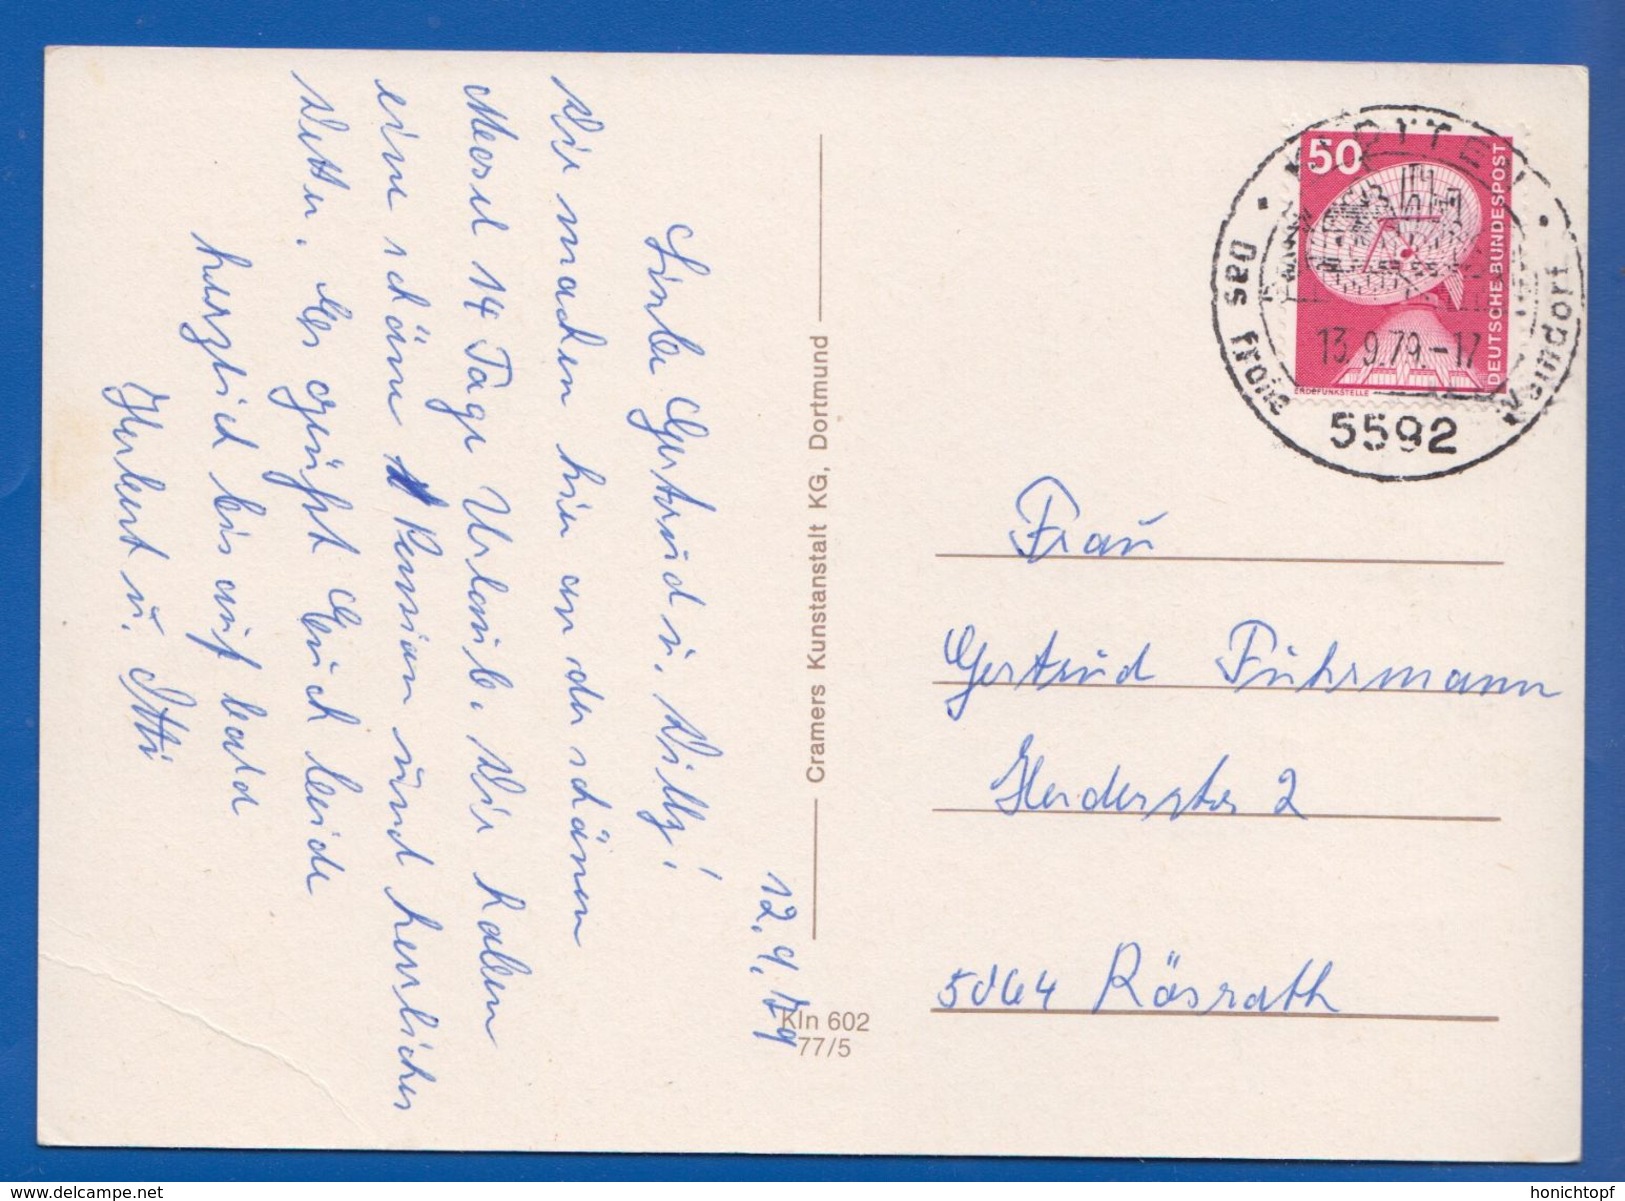 12.9.79
Liebe Gertrud u. Willy!
Wir machen hier an der schönen
Mosel 14 Tage Urlaub. Wir haben
eine schöne Pension und herrliches
Wetter. Es grüßt Euch beide
herzlich bis auf bald
Herbert u. Otti
Cramers Kunstanstalt KG, Dortmund
Kln 602
77/5
50
DEUTSCHE BUNDESPOST
ERDEFUNKSTELLE
KLOTTEN
Das frohe Weindorf
13.9.79.-17
5592
Frau
Gertrud Fuhrmann
Herderstr 2
5064 Rösrath
www.delcampe.net
honichtopf